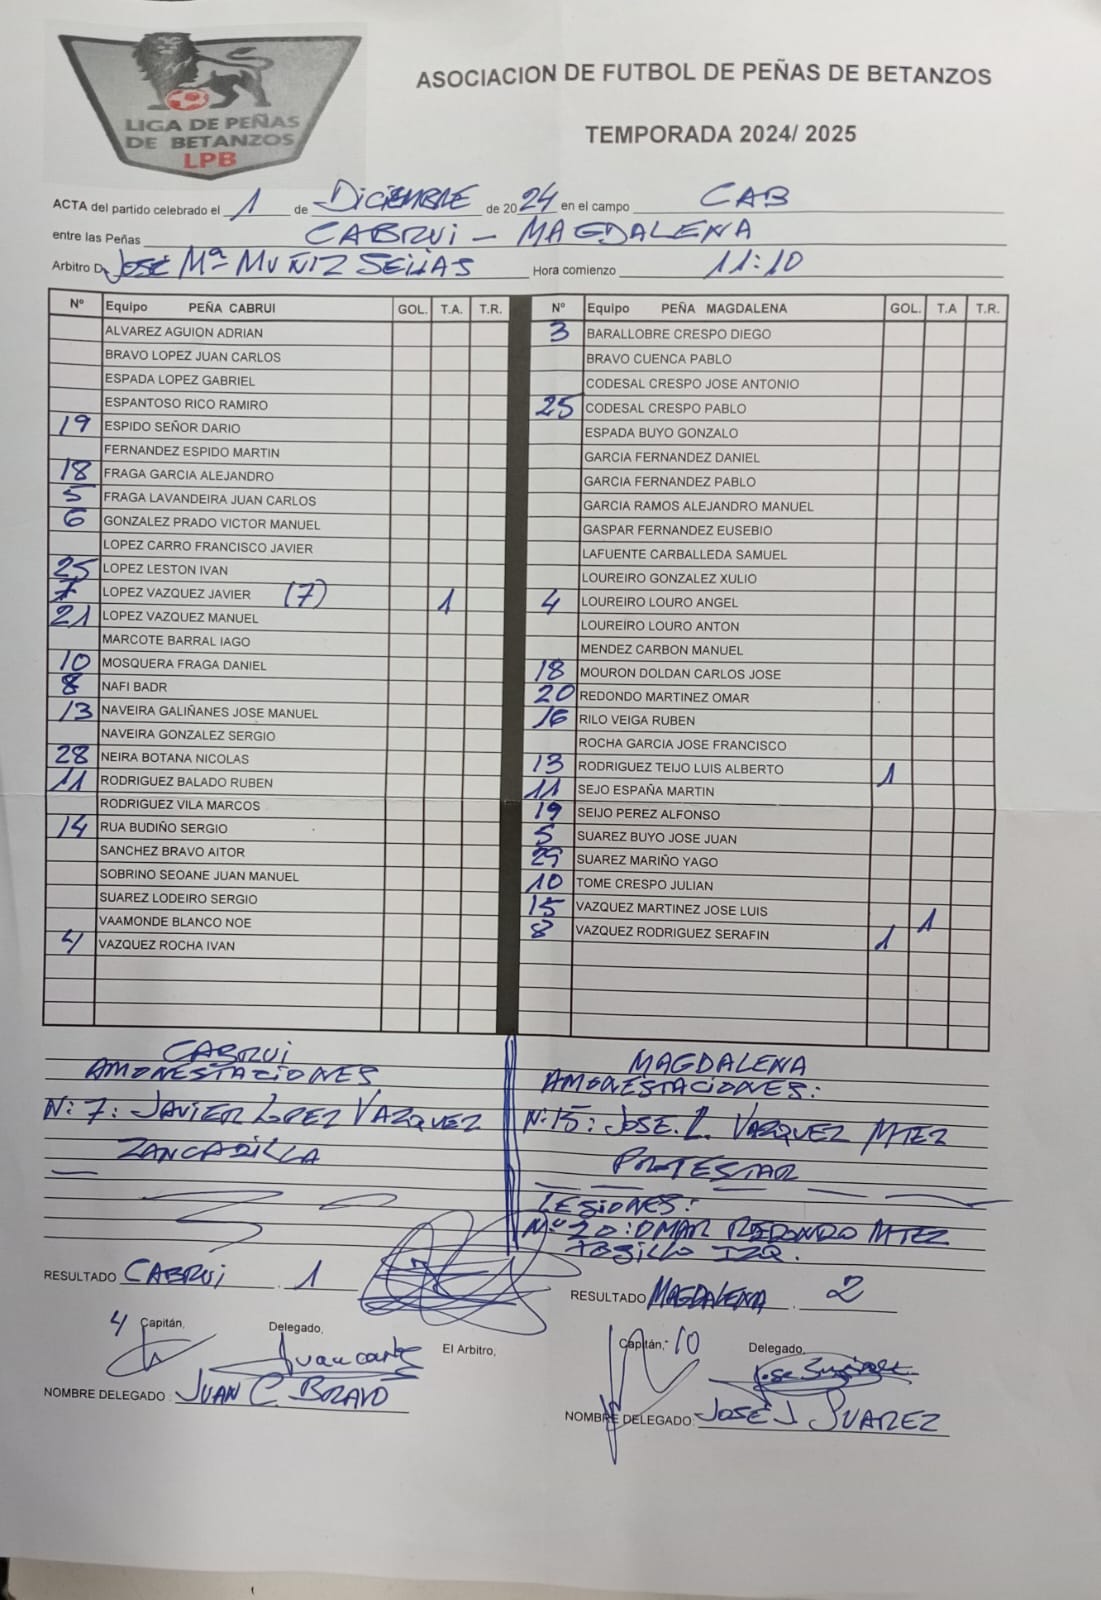 LIGA DE PEÑAS
DE BETANZOS
LPB
ASOCIACION DE FUTBOL DE PEÑAS DE BETANZOS
TEMPORADA 2024/ 2025
ACTA del partido celebrado el 1 de DiCiEMBRE de 2024 en el campo CAB
entre las Peñas CABRUi - MAGDALENA
Arbitro D. JOSÉ Mª MUÑIZ SEIJAS Hora comienzo 11:10
Nº Equipo PEÑA CABRUI GOL. T.A. T.R. Nº Equipo PEÑA MAGDALENA GOL. T.A T.R.
ALVAREZ AGUION ADRIAN 3 BARALLOBRE CRESPO DIEGO
BRAVO LOPEZ JUAN CARLOS BRAVO CUENCA PABLO
ESPADA LOPEZ GABRIEL CODESAL CRESPO JOSE ANTONIO
ESPANTOSO RICO RAMIRO 25 CODESAL CRESPO PABLO
19 ESPIDO SEÑOR DARIO ESPADA BUYO GONZALO
FERNANDEZ ESPIDO MARTIN GARCIA FERNANDEZ DANIEL
18 FRAGA GARCIA ALEJANDRO GARCIA FERNANDEZ PABLO
5 FRAGA LAVANDEIRA JUAN CARLOS GARCIA RAMOS ALEJANDRO MANUEL
6 GONZALEZ PRADO VICTOR MANUEL GASPAR FERNANDEZ EUSEBIO
LOPEZ CARRO FRANCISCO JAVIER LAFUENTE CARBALLEDA SAMUEL
25 LOPEZ LESTON IVAN LOUREIRO GONZALEZ XULIO
7 LOPEZ VAZQUEZ JAVIER (7) 1 4 LOUREIRO LOURO ANGEL
21 LOPEZ VAZQUEZ MANUEL LOUREIRO LOURO ANTON
MARCOTE BARRAL IAGO MENDEZ CARBON MANUEL
10 MOSQUERA FRAGA DANIEL 18 MOURON DOLDAN CARLOS JOSE
8 NAFI BADR 20 REDONDO MARTINEZ OMAR
13 NAVEIRA GALIÑANES JOSE MANUEL 16 RILO VEIGA RUBEN
NAVEIRA GONZALEZ SERGIO ROCHA GARCIA JOSE FRANCISCO
28 NEIRA BOTANA NICOLAS 13 RODRIGUEZ TEIJO LUIS ALBERTO 1
11 RODRIGUEZ BALADO RUBEN 11 SEJO ESPAÑA MARTIN
RODRIGUEZ VILA MARCOS 19 SEIJO PEREZ ALFONSO
14 RUA BUDIÑO SERGIO 5 SUAREZ BUYO JOSE JUAN
SANCHEZ BRAVO AITOR 29 SUAREZ MARIÑO YAGO
SOBRINO SEOANE JUAN MANUEL 10 TOME CRESPO JULIAN
SUAREZ LODEIRO SERGIO 15 VAZQUEZ MARTINEZ JOSE LUIS 1
VAAMONDE BLANCO NOE 8 VAZQUEZ RODRIGUEZ SERAFIN 1
4 VAZQUEZ ROCHA IVAN
CABRUi
AMONESTACIONES
Nº 7: JAVIER LOPEZ VAZQUEZ
ZANCADILLA
MAGDALENA
AMONESTACIONES:
Nº 15: JOSE. L. VAZQUEZ MTEZ
PROTESTAR
LESIONES:
Nº 20: OMAR REDONDO MTEZ
TOBILLO IZQ.
RESULTADO CABRUi 1 RESULTADO MAGDALENA 2
4 Capitán, Delegado, El Arbitro, Capitán, 10 Delegado,
Juan carlos
NOMBRE DELEGADO: JUAN C. BRAVO NOMBRE DELEGADO: JOSÉ J. SUAREZ